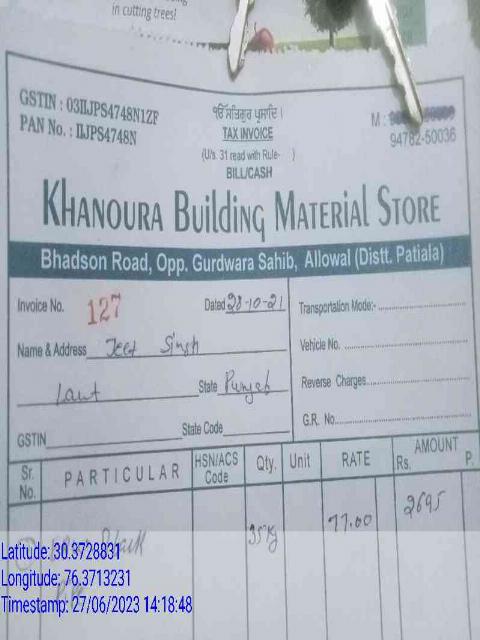 in cutting trees!
GSTIN : 03IIJPS4748N1ZF
PAN No. : IIJPS4748N
ੴ ਸਤਿਗੁਰ ਪ੍ਰਸਾਦਿ।
TAX INVOICE
(U/s. 31 read with Rule- )
BILL/CASH
M :
94782-50036
KHANOURA BUILDING MATERIAL STORE
Bhadson Road, Opp. Gurdwara Sahib, Allowal (Distt. Patiala)
Invoice No. 127 Dated 28-10-21
Name & Address Jeet Singh
Laut State Punjab
GSTIN State Code
Transportation Mode:-
Vehicle No.
Reverse Charges
G.R. No.
Sr. No. PARTICULAR HSN/ACS Code Qty. Unit RATE AMOUNT Rs. P.
35 Kg 77.00 2695
Latitude: 30.3728831
Longitude: 76.3713231
Timestamp: 27/06/2023 14:18:48